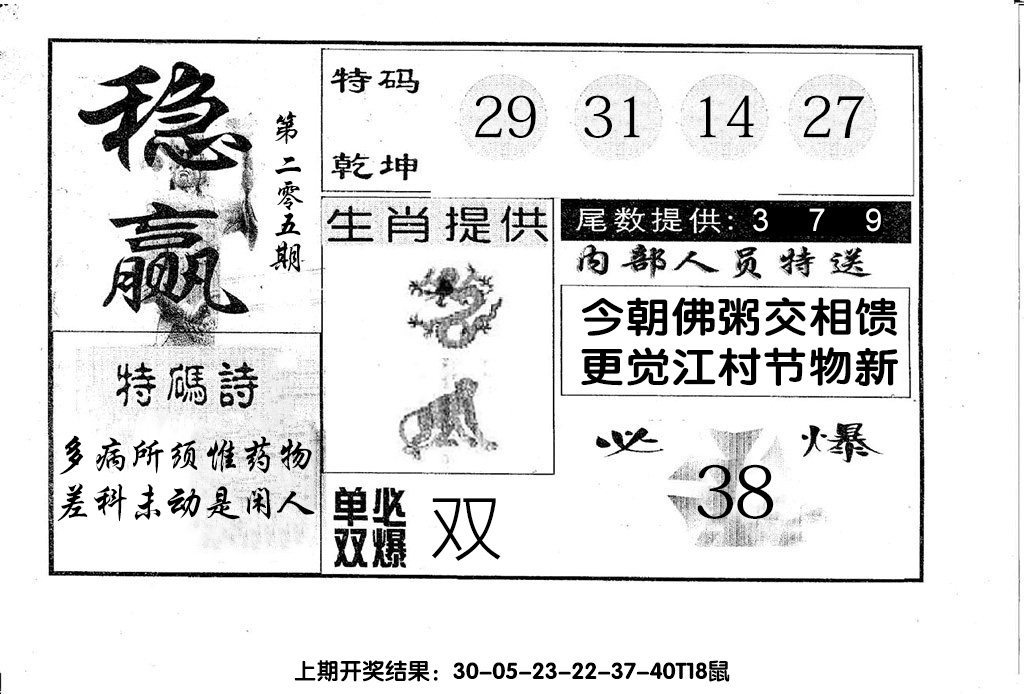 稳赢
第二零五期
特码
乾坤
29 31 14 27
生肖提供
尾数提供: 3 7 9
内部人员特送
今朝佛粥交相馈
更觉江村节物新
特碼詩
多病所须惟药物
差科未动是闲人
单双必爆
双
必爆
38
上期开奖结果：30-05-23-22-37-40T18鼠